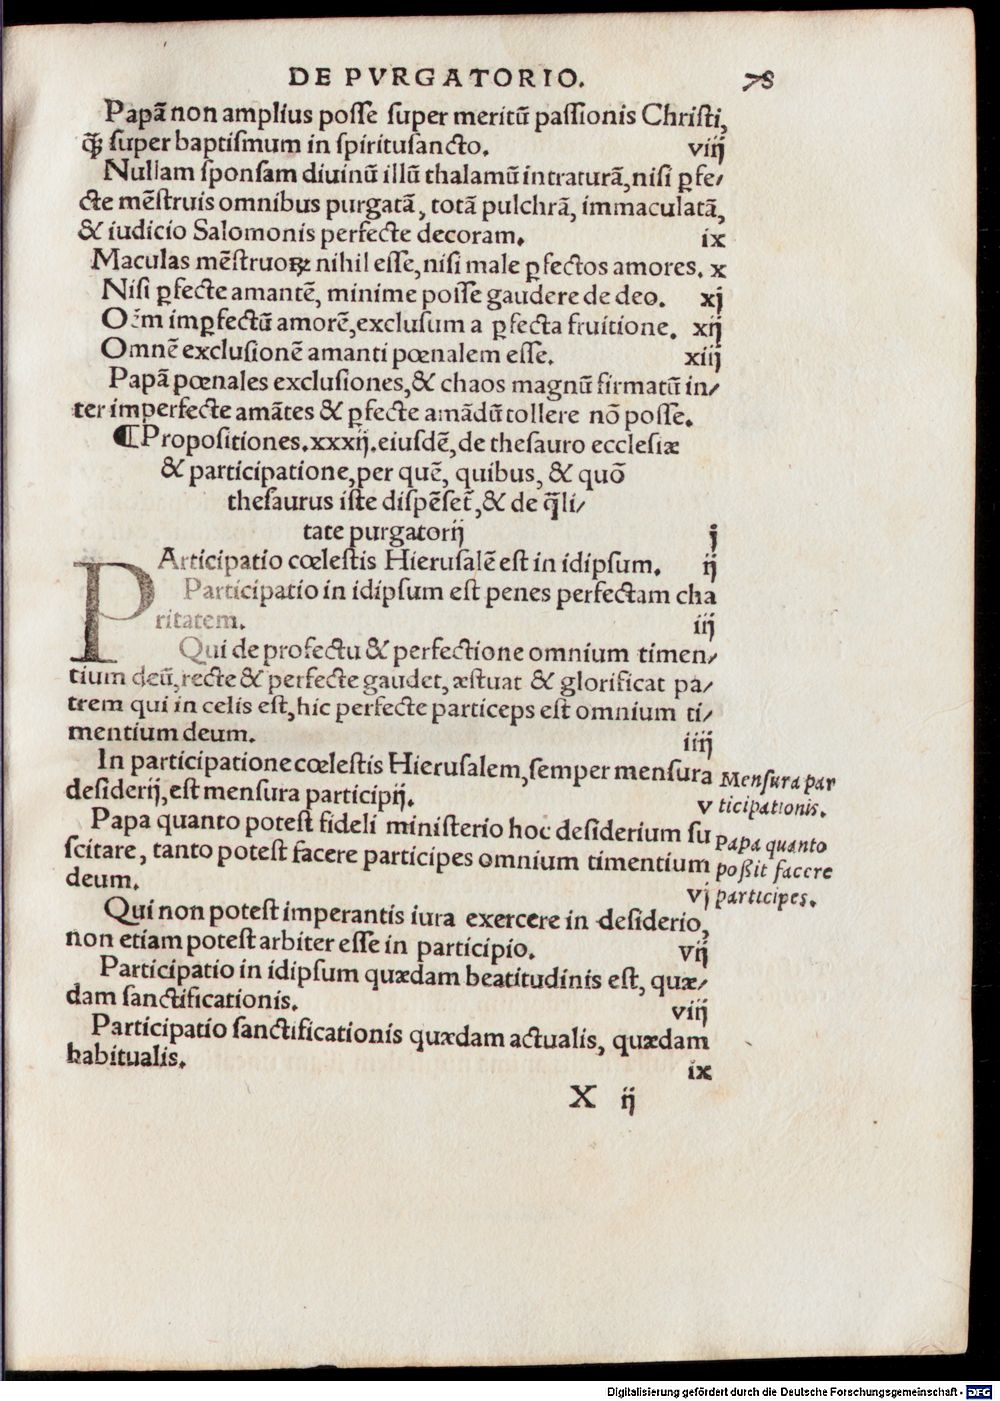 DE PVRGATORIO. 78
Papã non amplius posse super meritũ passionis Christi,
ꝙ̃ super baptismum in spiritusancto. viij
Nullam sponsam diuinũ illũ thalamũ intraturã, nisi ꝑfe/
cte mẽstruis omnibus purgatã, totã pulchrã, immaculatã,
& iudicio Salomonis perfecte decoram. ix
Maculas mẽstruoꝝ nihil esse, nisi male ꝑfectos amores. x
Nisi ꝑfecte amantẽ, minime posse gaudere de deo. xj
Oẽm imꝑfectũ amorẽ, exclusum a ꝑfecta fruitione. xij
Omnẽ exclusionẽ amanti pœnalem esse. xiij
Papã pœnales exclusiones, & chaos magnũ firmatũ in/
ter imperfecte amãtes & ꝑfecte amãdũ tollere nõ posse.
¶Propositiones.xxxij.eiusdẽ, de thesauro ecclesiæ
& participatione, per quẽ, quibus, & quõ
thesaurus iste dispẽset̃, & de q̃li/
tate purgatorij j
PArticipatio cœlestis Hierusalẽ est in idipsum. ij
Participatio in idipsum est penes perfectam cha
ritatem. iij
Qui de profectu & perfectione omnium timen/
tium deũ, recte & perfecte gaudet, æstuat & glorificat pa/
trem qui in celis est, hic perfecte particeps est omnium ti/
mentium deum. iiij
In participatione cœlestis Hierusalem, semper mensura
desiderij, est mensura participij. v
Mensura par
ticipationis.
Papa quanto potest fideli ministerio hoc desiderium su
scitare, tanto potest facere participes omnium timentium
deum. vj
Papa quanto
possit facere
participes.
Qui non potest imperantis iura exercere in desiderio,
non etiam potest arbiter esse in participio. vij
Participatio in idipsum quædam beatitudinis est, quæ/
dam sanctificationis. viij
Participatio sanctificationis quædam actualis, quædam
habitualis. ix
X ij
Digitalisierung gefördert durch die Deutsche Forschungsgemeinschaft - DFG